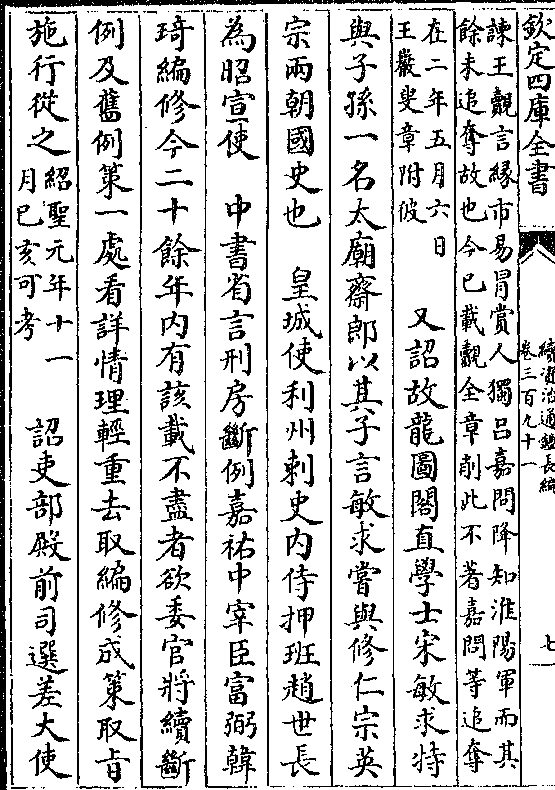 欽定四庫全書
續資治通鑑長編
卷三百九十一
七
諫王覿言緣市易冒賞人獨吕嘉問降知淮陽軍而其
餘未追奪故也今已載覿全章削此不著嘉問等追奪
在二年五月六日
王巖叟章附彼
又詔故龍圖閣直學士宋敏求特
與子孫一名太廟齋郎以其子言敏求嘗與修仁宗英
宗兩朝國史也　皇城使利州刺史内侍押班趙世長
為昭宣使　中書省言刑房斷例嘉祐中宰臣富弼韓
琦編修今二十餘年内有該載不盡者欲委官將續斷
例及舊例策一處看詳情理輕重去取編修成策取㫖
施行從之
紹聖元年十一
月己亥可考
詔吏部殿前司選差大使